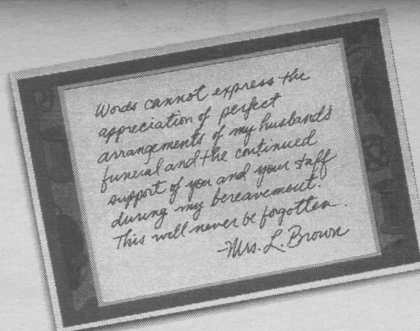 Words cannot express the
appreciation of perfect
arrangements of my husbands
funeral and the continued
support of you and your staff
during my bereavement.
This will never be forgotten.
-Mrs. L. Brown